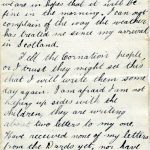 we are in hopes that it will be
fine in the morning. I can not
complain of the way the weather
has treated me since my arrival
in Scotland.
Tell the Cornation's people,
or I trust they might see this
that I will write them some
day again. I am afraid I am not
keeping up sides with the
children, they are writing
about two letters to my one
Have received none of my letters
from the Dardo yet, nor have